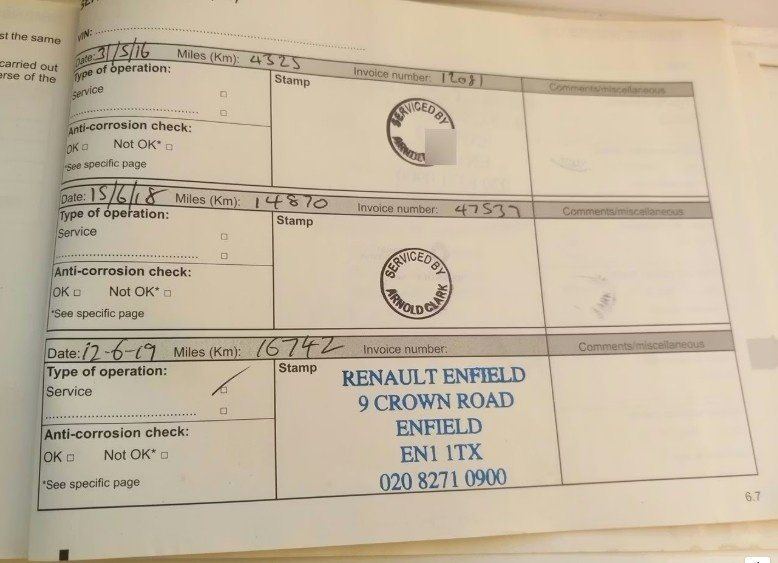 st the same
carried out
erse of the
VIN:
Date: 31/5/16 Miles (Km): 4325 Invoice number: 12081 Comments/miscellaneous
Type of operation:
Stamp
Service
SERVICED BY
Anti-corrosion check:
OK Not OK*
*See specific page
Date: 15/6/18 Miles (Km): 14870 Invoice number: 47537 Comments/miscellaneous
Type of operation:
Stamp
Service
SERVICED BY
ARNOLD CLARK
Anti-corrosion check:
OK Not OK*
*See specific page
Date: 12-6-19 Miles (Km): 16742 Invoice number: Comments/miscellaneous
Type of operation:
Stamp
Service
RENAULT ENFIELD
9 CROWN ROAD
ENFIELD
EN1 1TX
020 8271 0900
Anti-corrosion check:
OK Not OK*
*See specific page
6.7